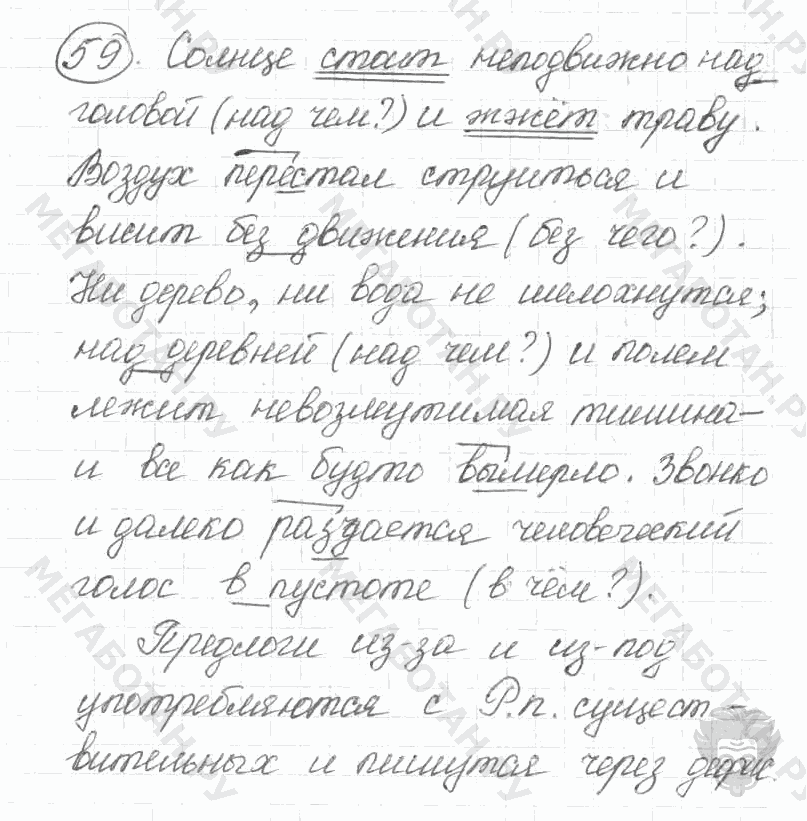 59. Солнце стоит неподвижно над
головой (над чем?) и жжёт траву.
Воздух перестал струиться и
висит без движения (без чего?).
Ни дерево, ни вода не шелохнутся;
над деревней (над чем?) и полем
лежит невозмутимая тишина –
и все как будто вымерло. Звонко
и далеко раздается человеческий
голос в пустоте (в чём?).
Предлоги из-за и из-под
употребляются с Р.п. сущест-
вительных и пишутся через дефис.
МЕГАБОТАН.РУ